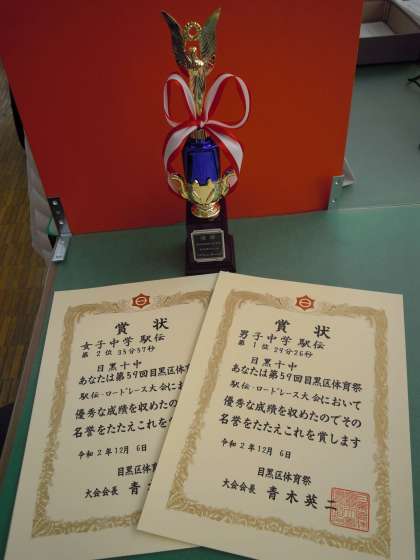 優勝
賞状
女子中学 駅伝
第2位 35分57秒
目黒十中
あなたは第59回目黒区体育祭
駅伝・ロードレース大会にお
優秀な成績を収めたので
名誉をたたえこれを
令和2年12月6日
目黒区体育
大会会長 青
賞状
男子中学 駅伝
第1位 29分26秒
目黒十中
あなたは第59回目黒区体育祭
駅伝・ロードレース大会において
優秀な成績を収めたのでその
名誉をたたえこれを賞します
令和2年12月6日
目黒区体育祭
大会会長 青木英二